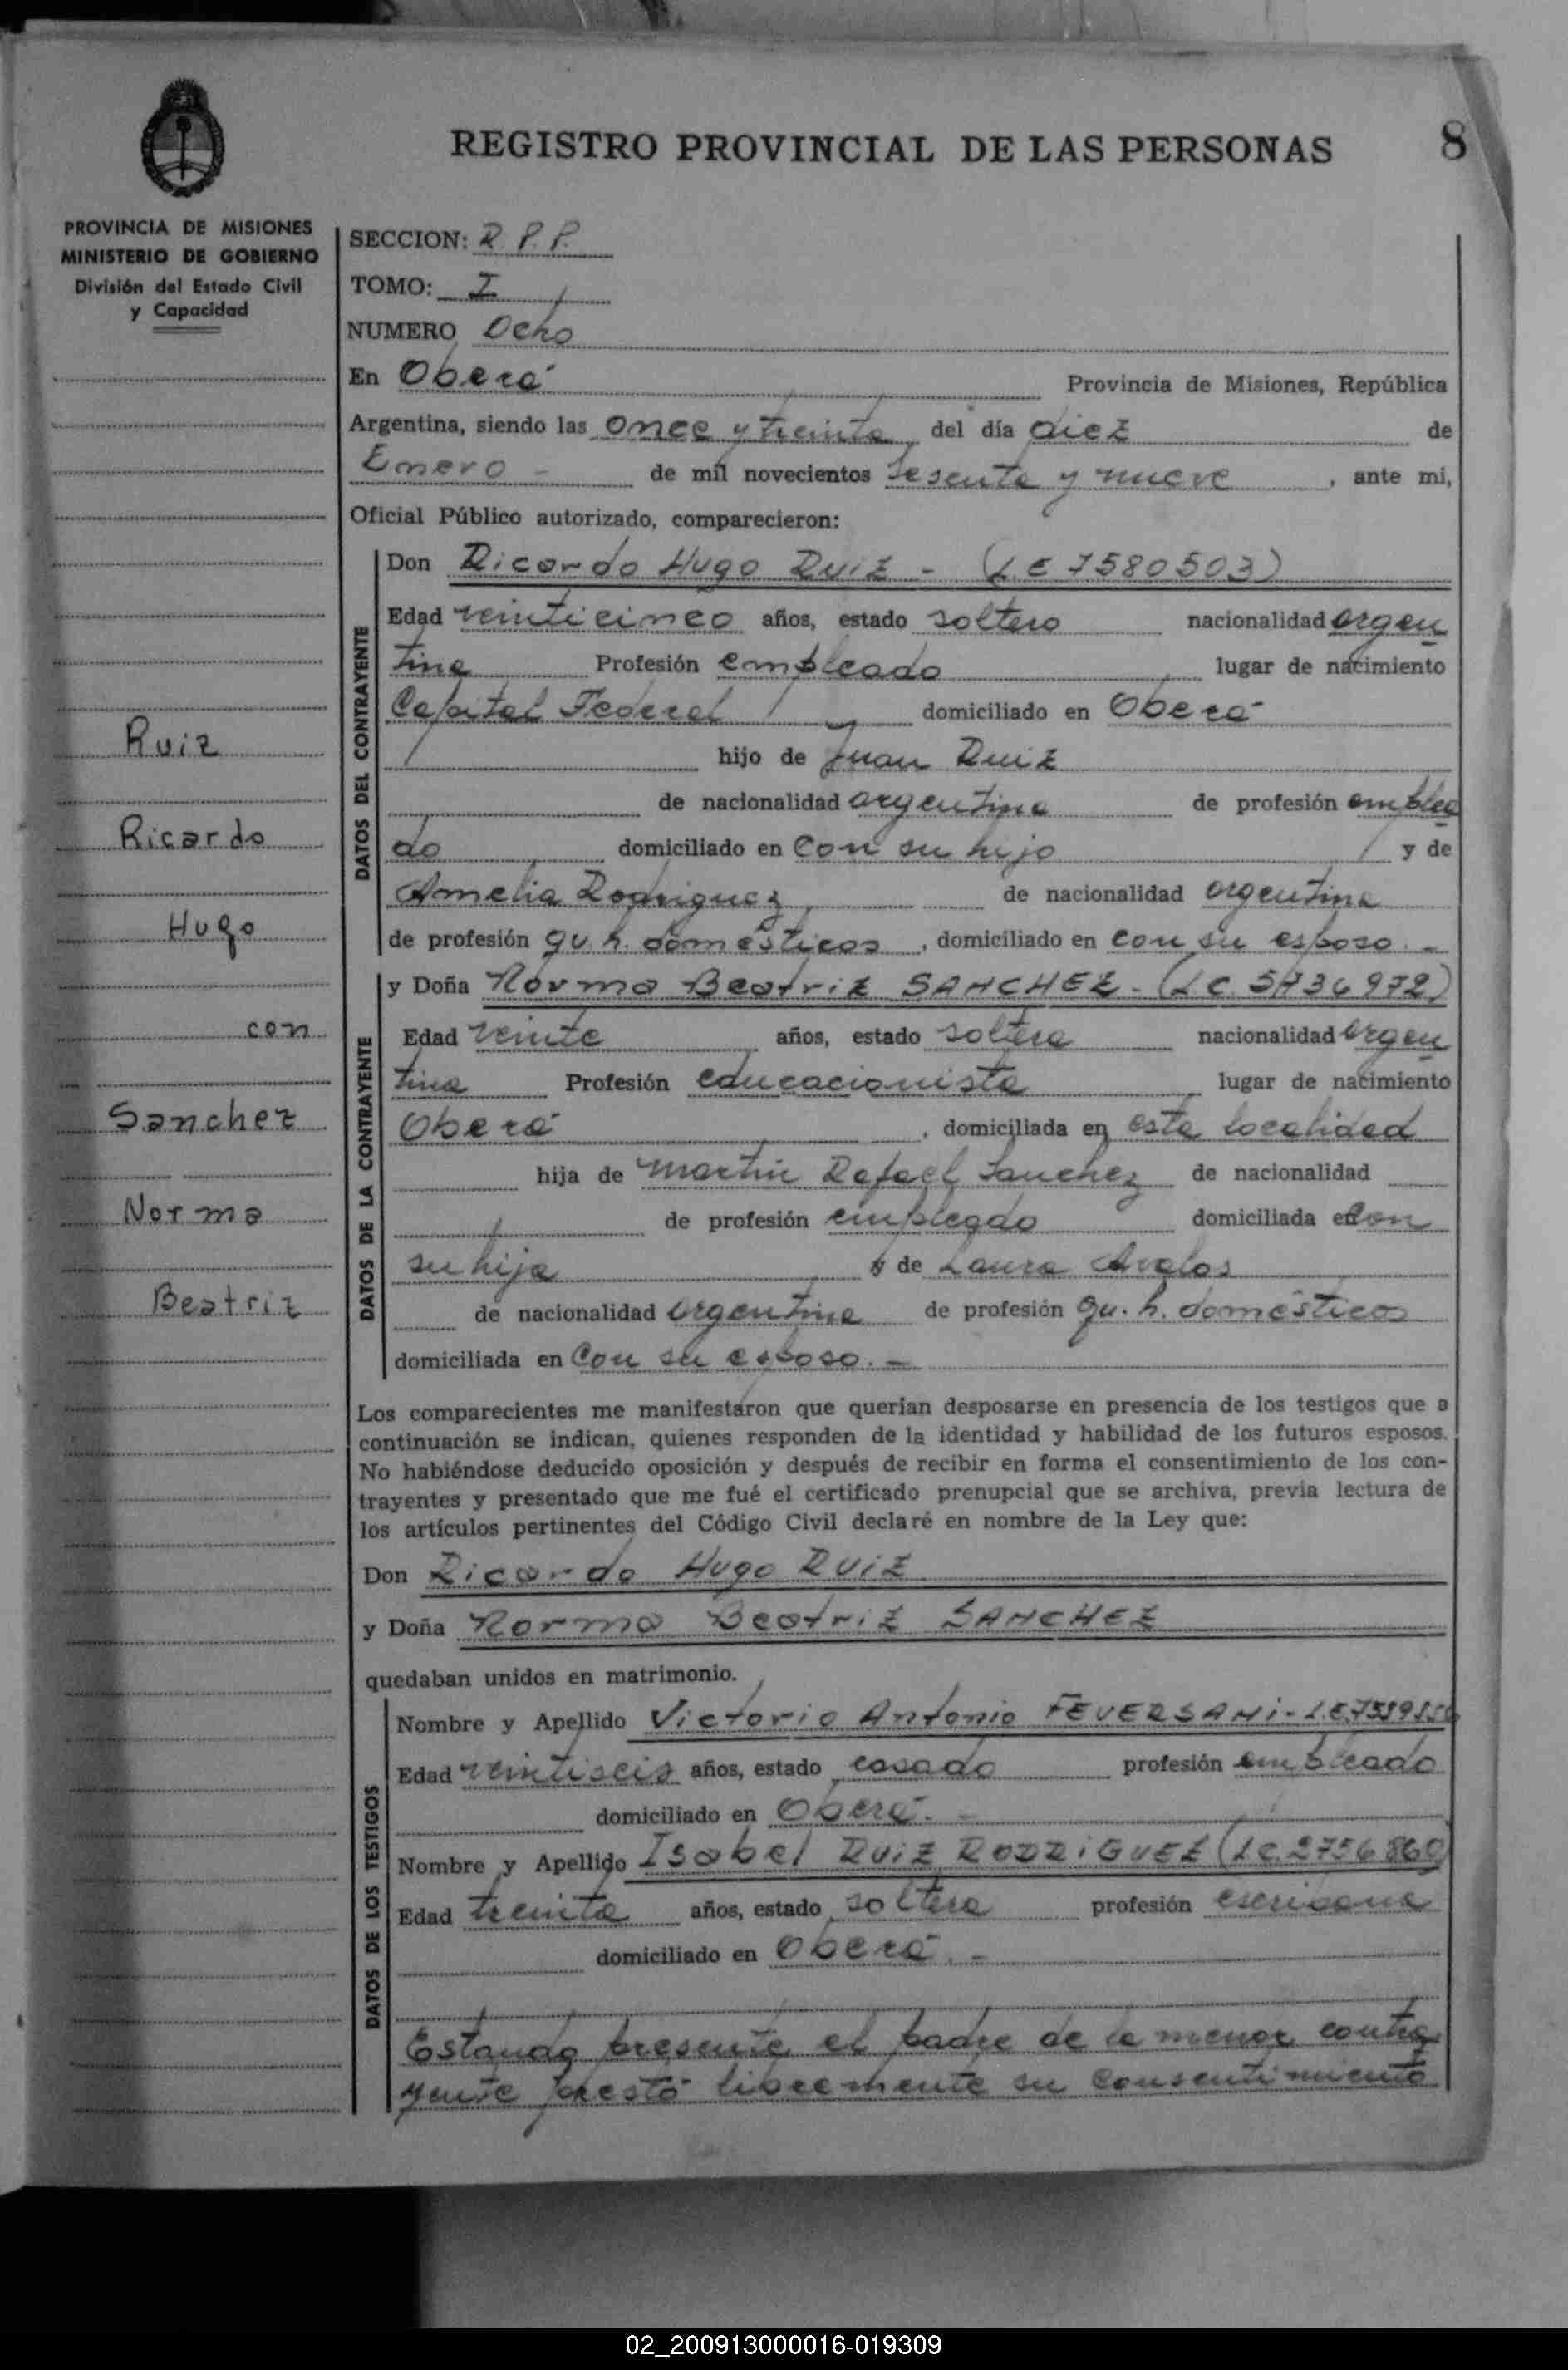 REGISTRO PROVINCIAL DE LAS PERSONAS 8
PROVINCIA DE MISIONES
MINISTERIO DE GOBIERNO
División del Estado Civil
y Capacidad
Ruiz
Ricardo
Hugo
con
Sanchez
Norma
Beatriz
SECCION: R.P.P.
TOMO: I
NUMERO Ocho
En Oberá Provincia de Misiones, República
Argentina, siendo las once y treinta del día diez de
Enero - de mil novecientos sesenta y nueve, ante mi,
Oficial Público autorizado, comparecieron:
DATOS DEL CONTRAYENTE
Don Ricardo Hugo Ruiz - (L E 7580503)
Edad veinticinco años, estado soltero nacionalidad argen
tina Profesión empleado lugar de nacimiento
Capital Federal domiciliado en Oberá
hijo de Juan Ruiz
de nacionalidad argentina de profesión emplea
do domiciliado en con su hijo y de
Amelia Rodriguez de nacionalidad argentina
de profesión qu. h. domésticos, domiciliado en con su esposo. -
DATOS DE LA CONTRAYENTE
y Doña Norma Beatriz SANCHEZ - (L C
Edad veinte años, estado soltera nacionalidad argen
tina Profesión educacionista lugar de nacimiento
Oberá, domiciliada en esta localidad
hija de Martin Rafael Sanchez de nacionalidad
de profesión empleado domiciliada en con
su hija y de Laura Avalos
de nacionalidad argentina de profesión qu. h. domésticos
domiciliada en con su esposo. -
Los comparecientes me manifestaron que querían desposarse en presencia de los testigos que a
continuación se indican, quienes responden de la identidad y habilidad de los futuros esposos.
No habiéndose deducido oposición y después de recibir en forma el consentimiento de los con-
trayentes y presentado que me fué el certificado prenupcial que se archiva, previa lectura de
los artículos pertinentes del Código Civil declaré en nombre de la Ley que:
Don Ricardo Hugo RUIZ
y Doña Norma Beatriz SANCHEZ
quedaban unidos en matrimonio.
DATOS DE LOS TESTIGOS
Nombre y Apellido Victorio Antonio FEVERSANI - L.E.
Edad veintiseis años, estado casado profesión empleado
domiciliado en Oberá. -
Nombre y Apellido Isabel RUIZ RODRIGUEZ (L C. 2756860
Edad treinta años, estado soltera profesión escribana
domiciliado en Oberá. -
Estando presente el padre de la menor contra
yente prestó libremente su consentimiento
02_200913000016-019309